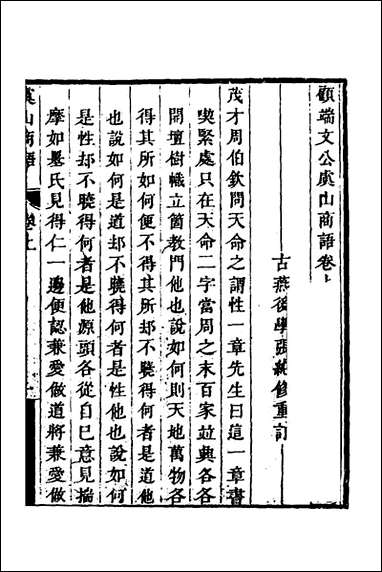 顧端文公虞山商語卷上
古燕後學張純修重訂
茂才周伯欽問天命之謂性一章先生曰這一章書
喫緊處只在天命二字當周之末百家並興各各
開壇樹幟立箇教門他也說如何則天地萬物各
得其所如何便不得其所却不曉得何者是道他
也說如何是道却不曉得何者是性他也說如何
是性却不曉得何者是他源頭各從自巳意見揣
摩如墨氏見得仁一邊便認兼愛做道將兼愛做
虞山商語 卷上